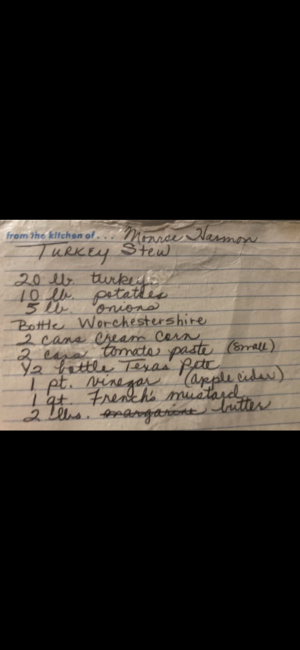 from the kitchen of... Monroe Harmon
TURKEY Stew
20 lb turkey
10 lb. potatoes
5 lb. onions
Bottle Worchestershire
2 cans Cream Corn
2 cans tomato paste (small)
1/2 bottle Texas Pete
1 pt. vinegar (apple cider)
1 qt. French's mustard
2 lbs. margarine butter